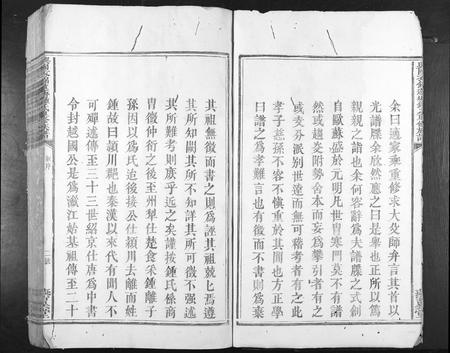 余曰適家乘重修求大爻師弁言其首以
光譜牒余欣然應之曰是舉也正所以篤
親親之誼也余何容辭爲夫譜牒之式創
自歐蘇盛於元明凡世胄寒門莫不有譜
然或趨炎附勢舍本而妄爲攀引者有之
或支分派別世遠而無可稽考者有之此
孝子慈孫不容不愼重於其間也方正學
曰譜之爲孝難言也有徵而不書則爲棄
其祖無徵而書之則爲誣其祖兢兢焉遵
其所知而所不知詳其所可徵不强述
其所難考則庶乎近之矣謹按鍾氏係商
胄微仲衍之後至州犁仕楚食采鍾離子
孫因以爲氏迨後接公仕潁川去離而姓
鍾故曰潁川郡也秦漢以來代有聞人不
可殫述傳至三十三世紹京仕唐爲中書
令封越國公是爲瀲江始基祖傳至二十